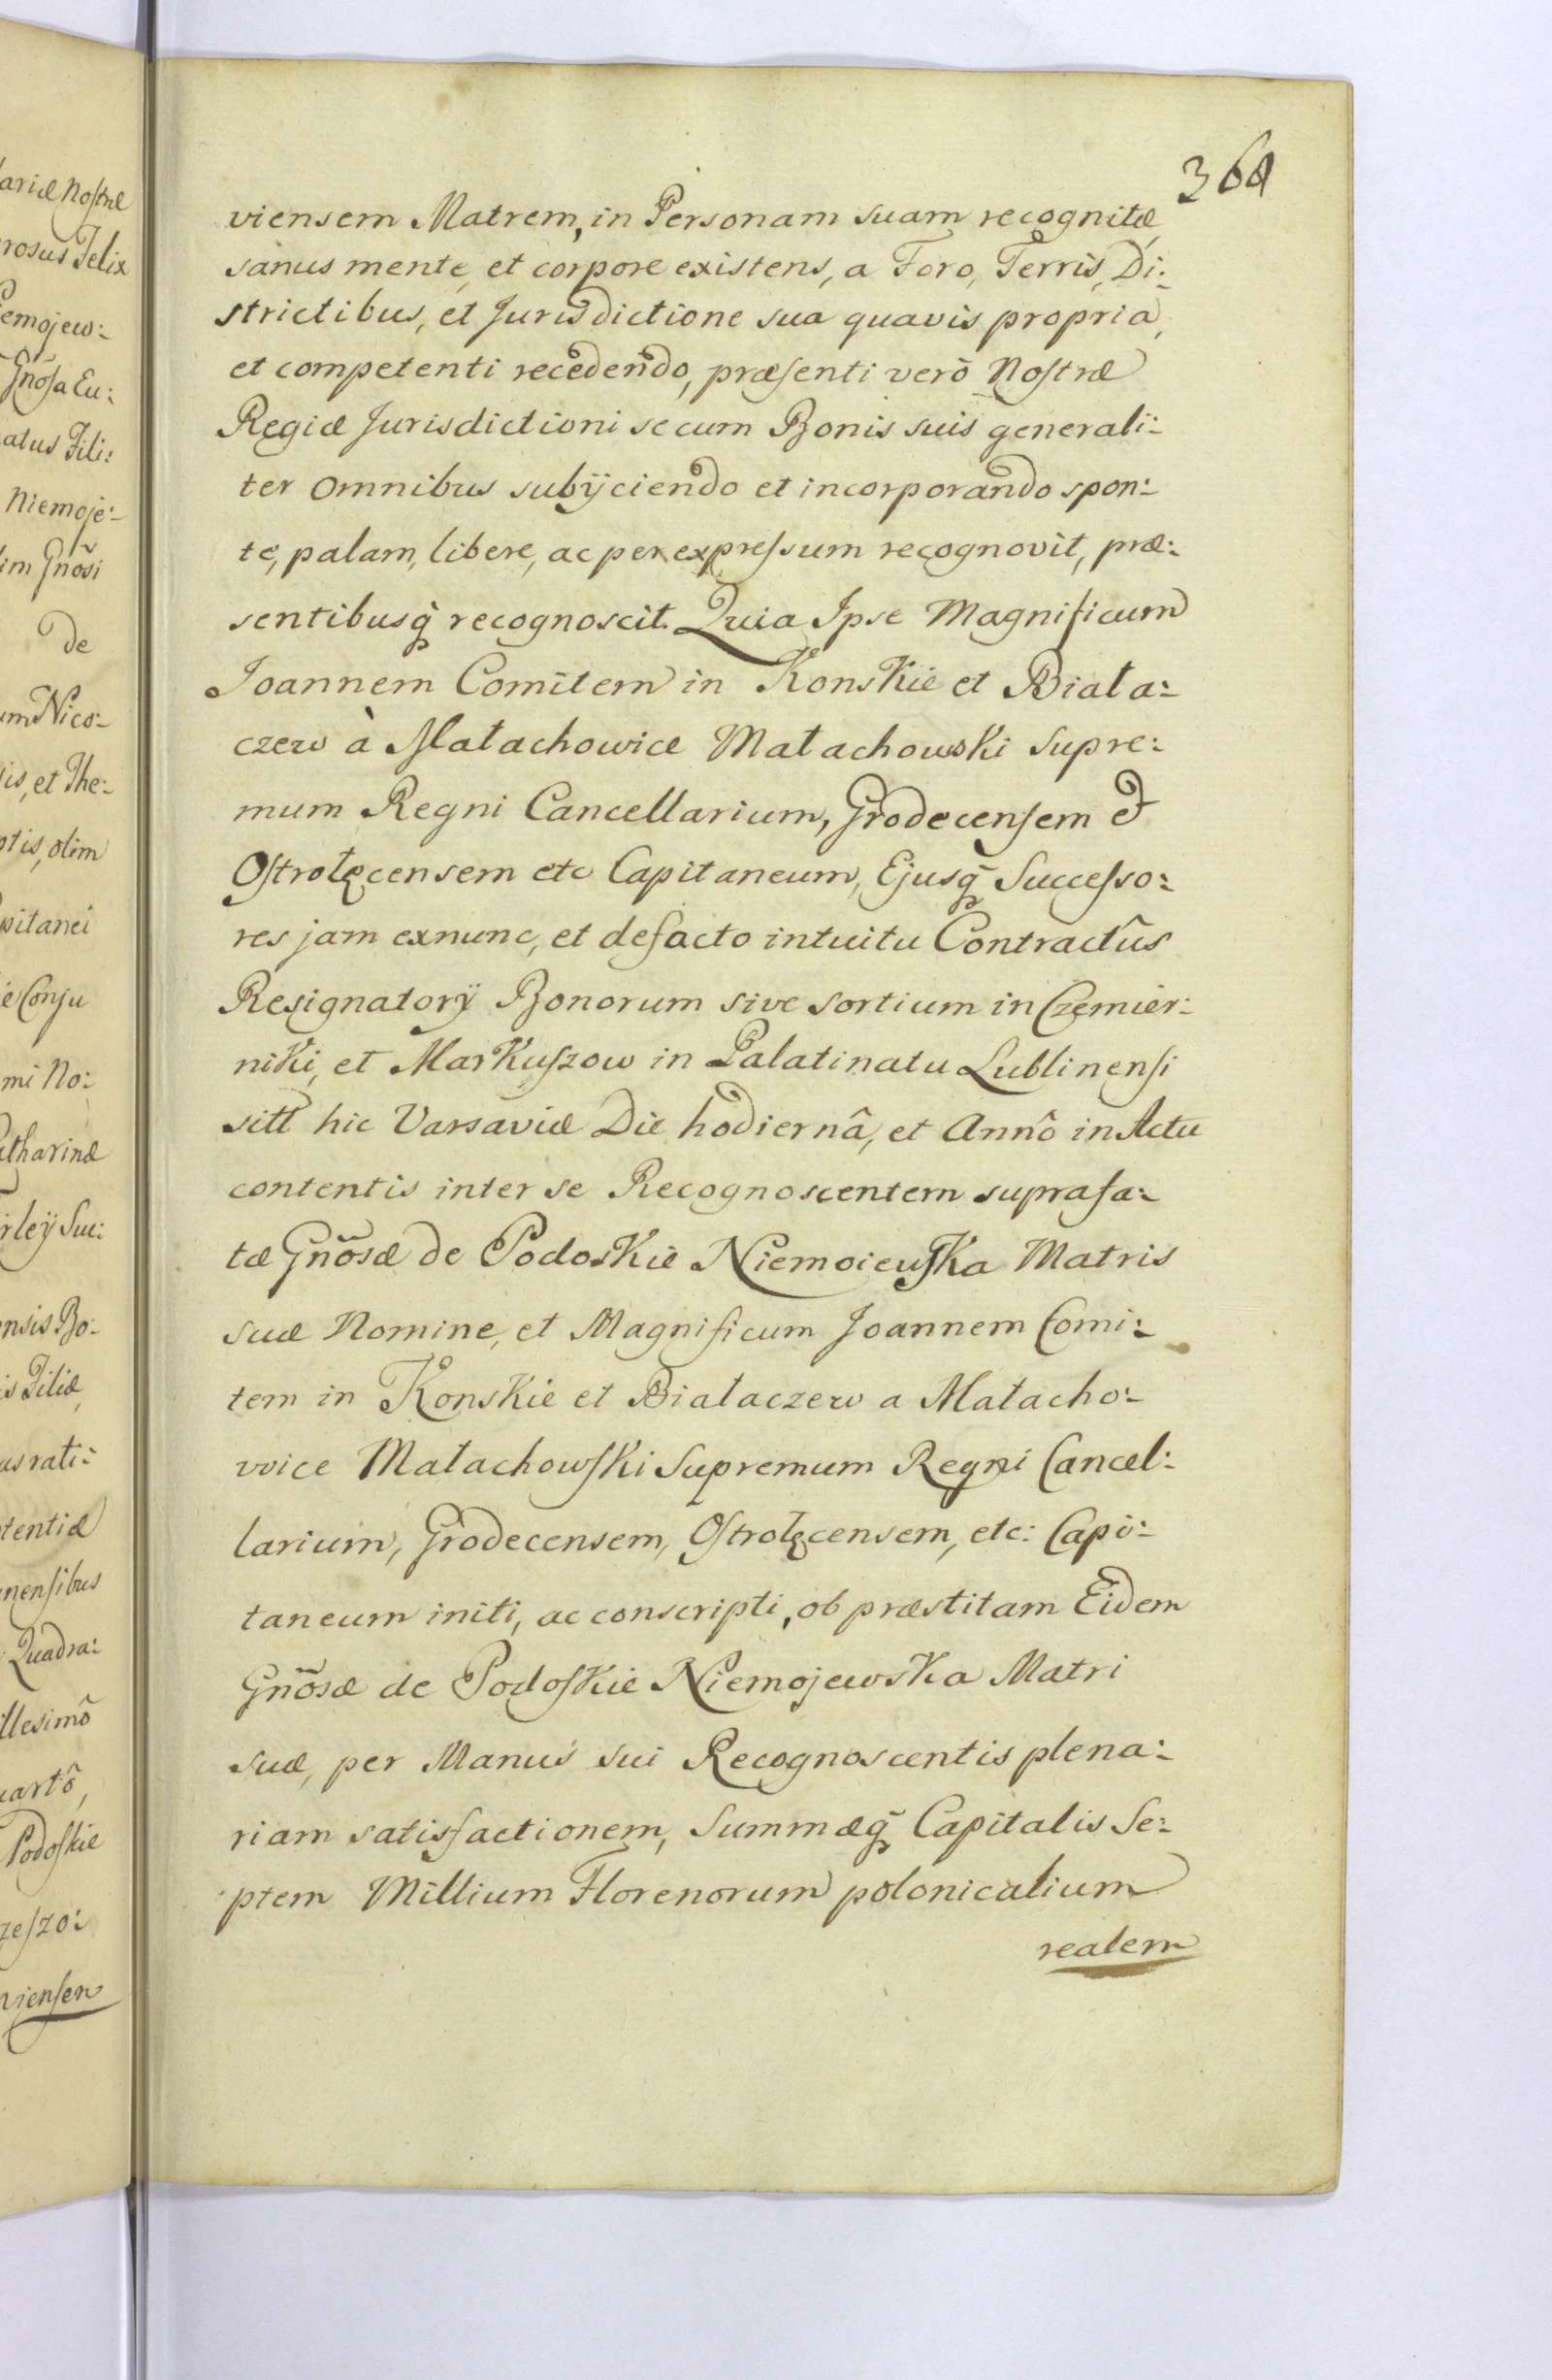 ariæ Noſtræ
rosus Felix
emojew:
Gnõſa Eu:
atus Fili:
Niemoje:
im Gnõsi
de
um Nico:
is, et The:
ptis, olim
pitanei
e Conſu
mi No:
atharinæ
rleÿ Suc:
ensis Bo:
is Filiæ,
us rati:
tentiæ
nenſibus
Quadra:
illesimô
uartô,
Podoſkie
zeſzo:
vienſem
viensem Matrem, in Personam suam recognitæ,
sanus mente, et corpore existens, a Foro, Terris, Di:
strictibus, et Jurisdictione sua quavis propria,
et competenti recedendo, præſenti verò Noſtræ
Regiæ Jurisdictioni se cum Bonis suis generali:
ter omnibus subÿciendo et incorporando spon:
te, palam, libere, ac per expreſsum recognovit, præ:
sentibusq̃ recognoscit. Quia Ipse Magnificum
Joannem Comitem in Konskie et Biała:
czew à Małachowice Małachowski Supre:
mum Regni Cancellarium, Grodecenſem &
Oſtrołęcensem etc Capitaneum, Ejusq̃ Succeſso:
res jam exnunc, et defacto intuitu Contractûs
Resignatorÿ Bonorum sive sortium in Czemier:
niki, et Markuſzow in Palatinatu Lublinenſi
sitt hic Varsaviæ Die hodiernâ, et Annô in Actu
contentis inter se Recognoscentem supraſa:
tæ Gnõsæ de Podoskie Niemoiewſka Matris
suæ Nomine, et Magnificum Joannem Comi:
tem in Konskie et Białaczew a Małacho:
wice Małachowſki Supremum Regni Cancel:
larium, Grodecensem, Oſtrołęcensem, etc: Capi:
taneum initi, ac conscripti, ob præstitam Eidem
Gnõsæ de Podoſkie Niemojewska Matri
suæ, per Manus sui Recognoscentis plena:
riam satisfactionem, Summæq̃ Capitalis Se:
ptem Millium Florenorum polonicalium
realem